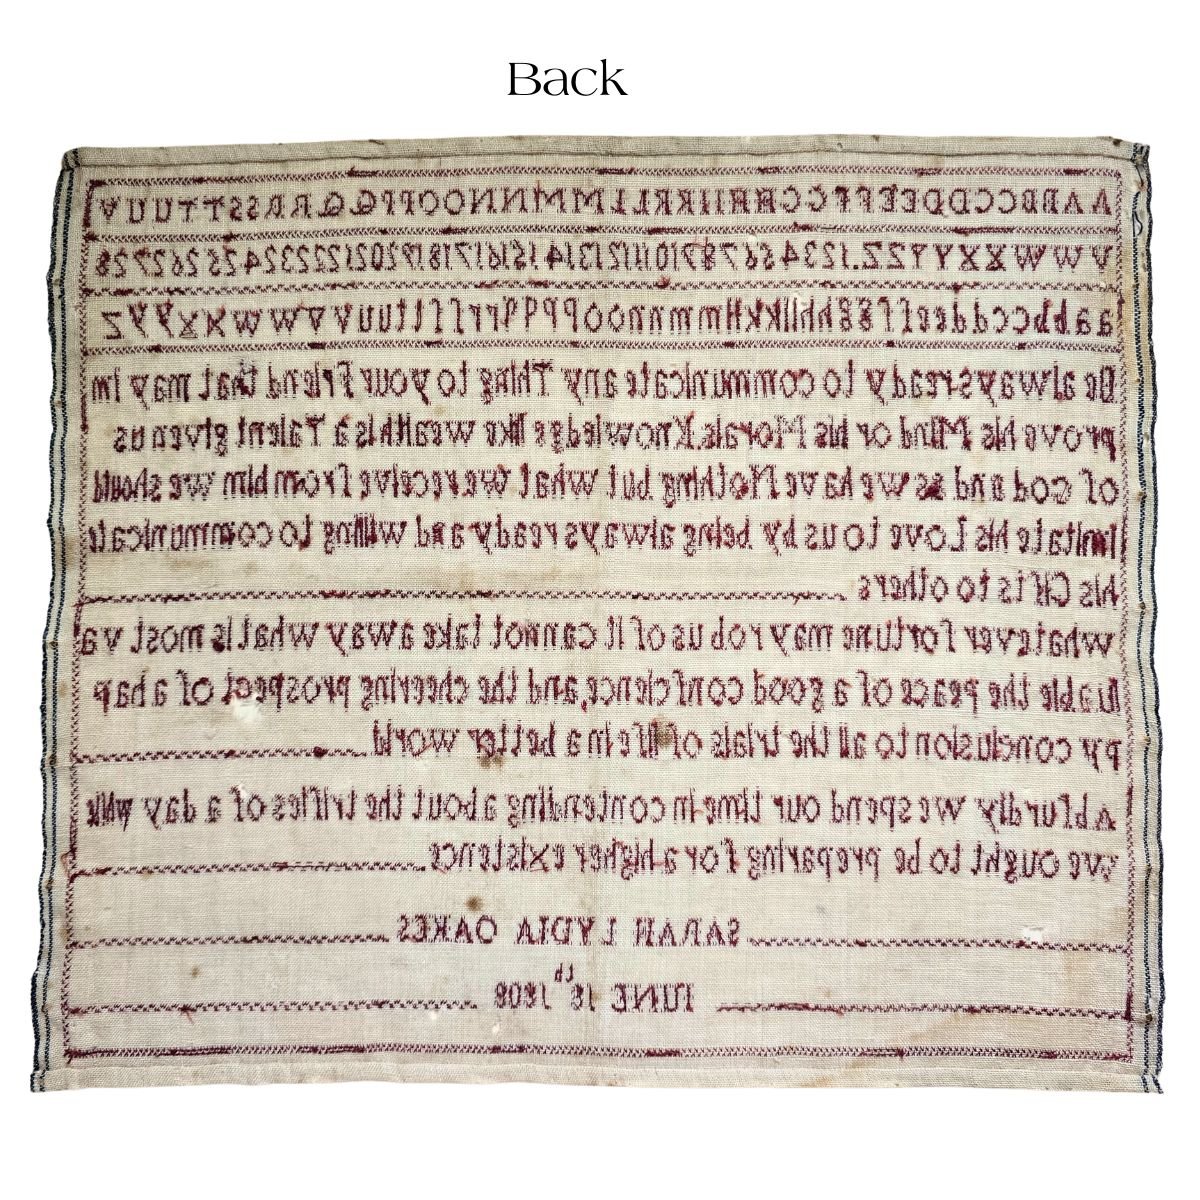 Back
AABBCCDDEEFFGGHHIIKKLLMMNNOOPPQQRRSSTTUUV
VWWXXYYZZ.12345678910111213141516171819202122232425262728
aabbccddeeffgghhiikkllmmnnooppqqrrſſttuuvvwwxxyyz
Be always ready to communicate any Thing to your friend that may im
prove his Mind or his Morals. Knowledge like wealth is a Talent given us
of God and as we have Nothing but what we receive from him we should
imitate his Love to us by being always ready and willing to communicate
his Gifts to others
whatever fortune may rob us of it cannot take away what is most va
luable the peace of a good conſcience, and the cheering prospect of a hap
py conclusion to all the trials of life in a better world
Abſurdly we spend our time in contending about the trifles of a day while
we ought to be preparing for a higher existence
SARAH LYDIA OAKES
JUNE 18th 1808